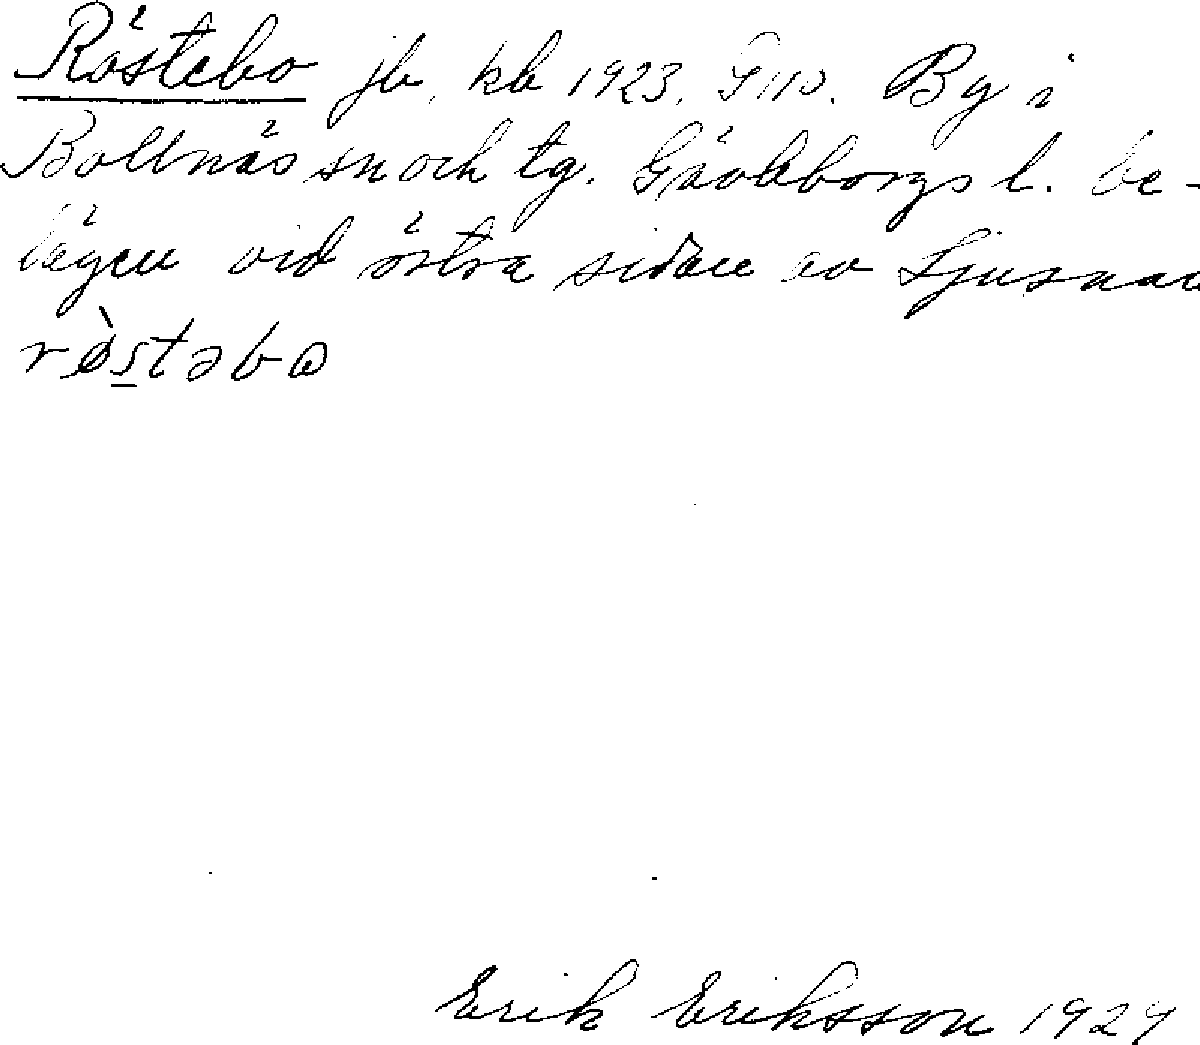 Röstebo jb, kb 1923. G 110. By i
Bollnäs sn och tg. Gävleborgs l. be-
lägen vid östra sidan av Ljusnan
rø̀s̲təbɷ
Erik Eriksson 1929